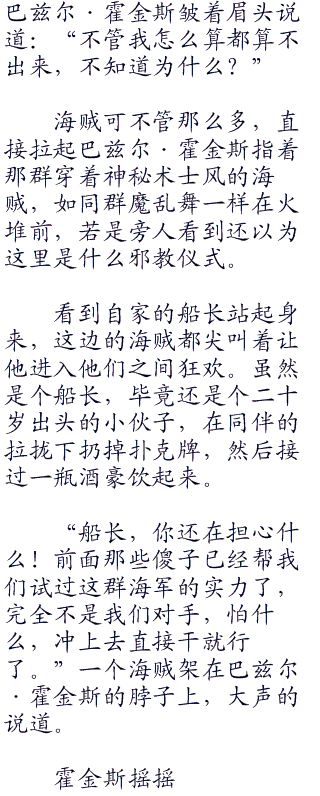 巴兹尔·霍金斯皱着眉头说
道：“不管我怎么算都算不
出来，不知道为什么？”
海贼可不管那么多，直
接拉起巴兹尔·霍金斯指着
那群穿着神秘术士风的海
贼，如同群魔乱舞一样在火
堆前，若是旁人看到还以为
这里是什么邪教仪式。
看到自家的船长站起身
来，这边的海贼都尖叫着让
他进入他们之间狂欢。虽然
是个船长，毕竟还是个二十
岁出头的小伙子，在同伴的
拉拢下扔掉扑克牌，然后接
过一瓶酒豪饮起来。
“船长，你还在担心什
么！前面那些傻子已经帮我
们试过这群海军的实力了，
完全不是我们对手，怕什
么，冲上去直接干就行
了。”一个海贼架在巴兹尔
·霍金斯的脖子上，大声的
说道。
霍金斯摇摇